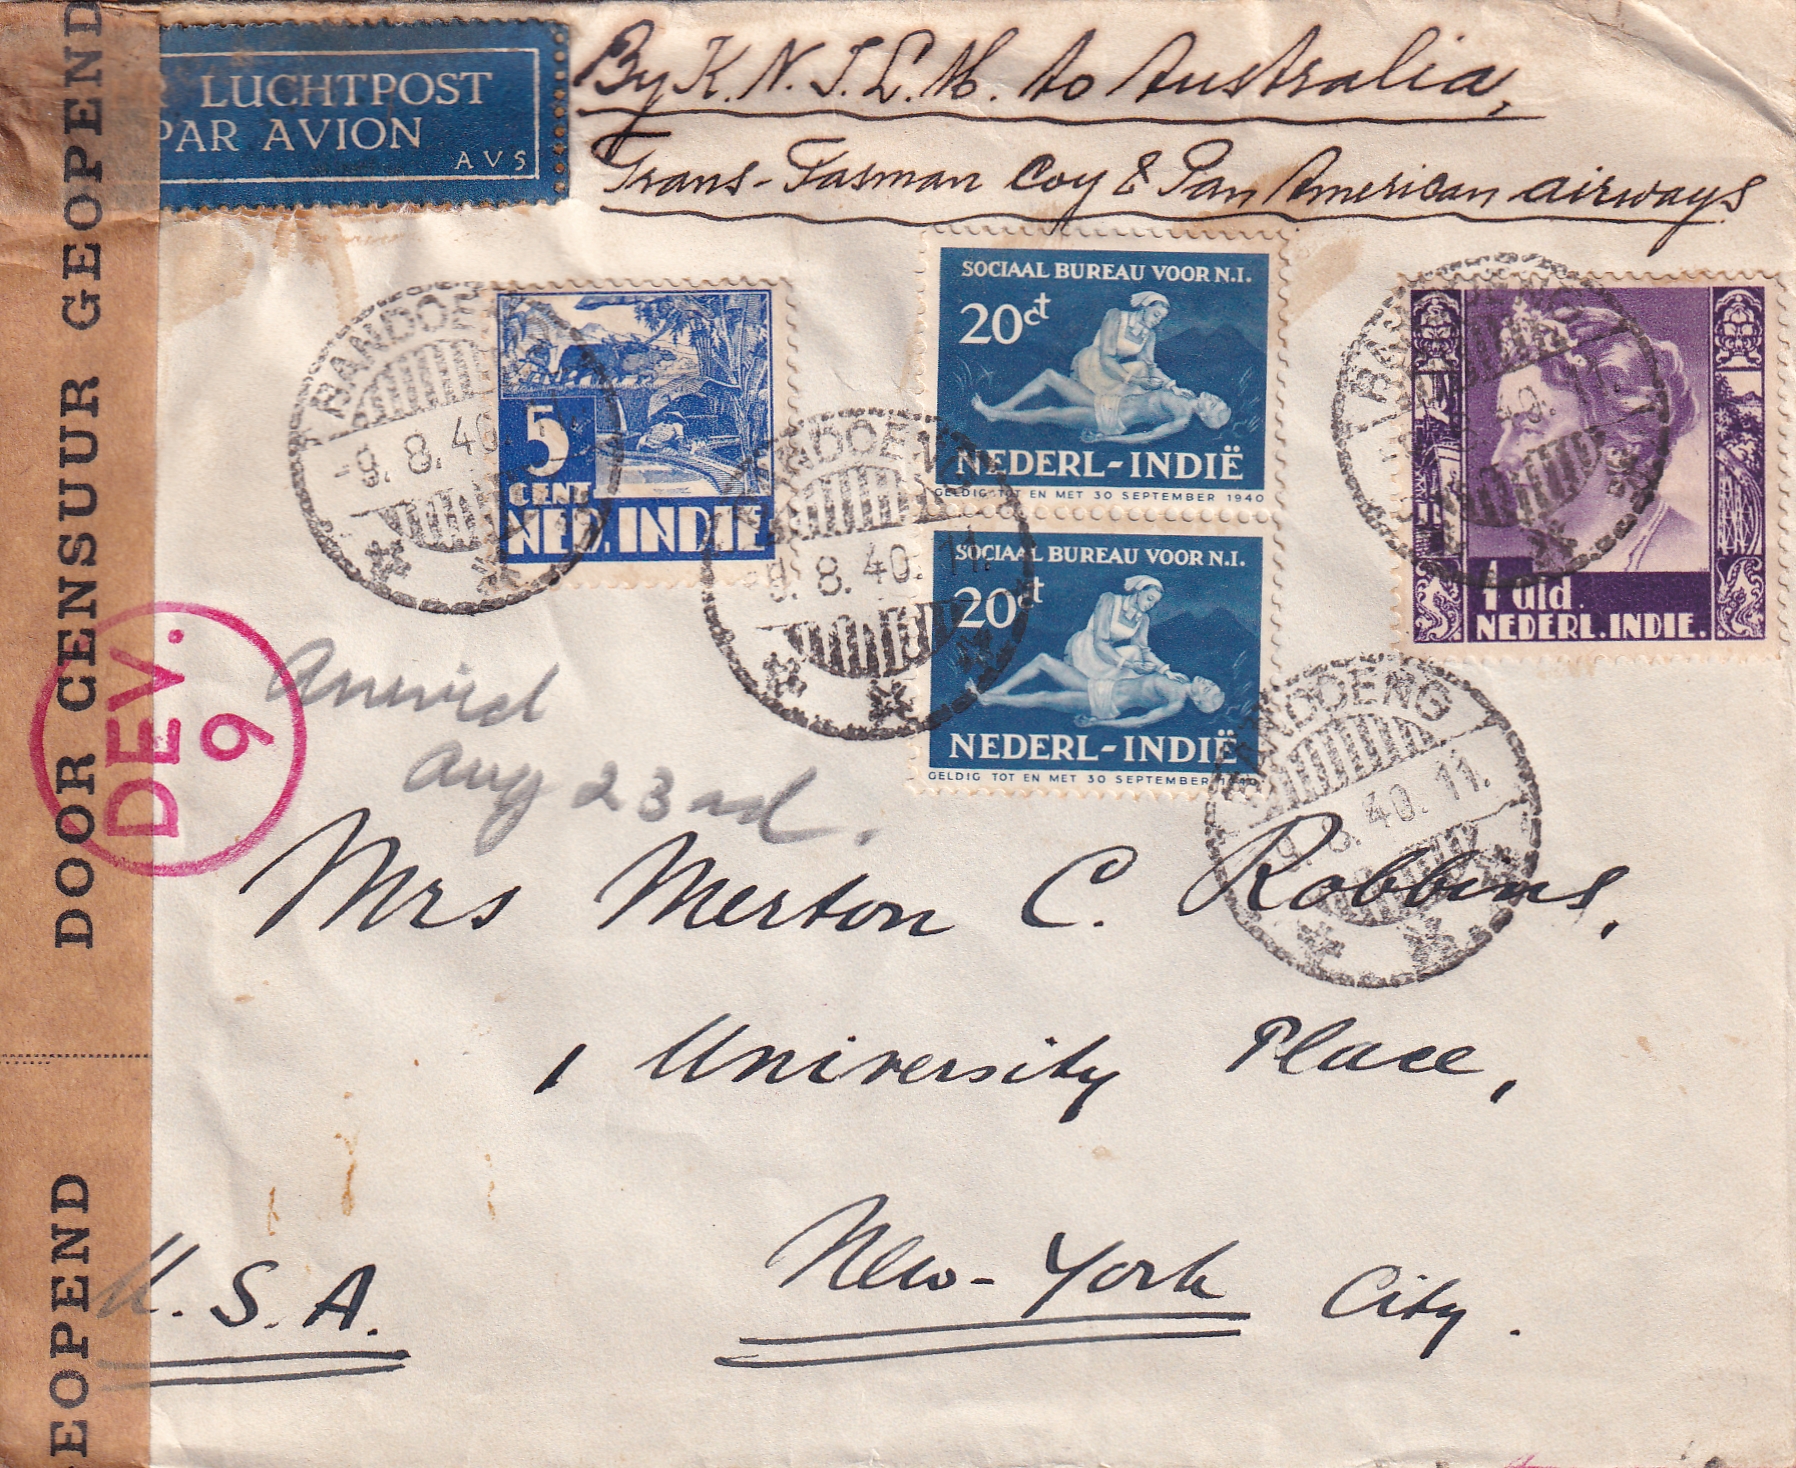 LUCHTPOST
PAR AVION
AVS
By K.N.I.L.M. to Australia,
Trans-Tasman Coy & Pan American airways
DOOR CENSUUR GEOPEND
EOPEND
DEV.
9
BANDOENG
-9. 8.40.
5
CENT
NED. INDIE
BANDOENG
9. 8.40. 11.
SOCIAAL BUREAU VOOR N.I.
20ct
NEDERL-INDIË
GELDIG TOT EN MET 30 SEPTEMBER 1940
SOCIAAL BUREAU VOOR N.I.
20ct
NEDERL-INDIË
GELDIG TOT EN MET 30 SEPTEMBER 1940
1 Gld.
NEDERL.INDIE.
BANDOENG
9.8.40.11.
Arrived
Aug 23rd.
Mrs Merton C. Robbins,
1 University Place,
New-York City.
U.S.A.